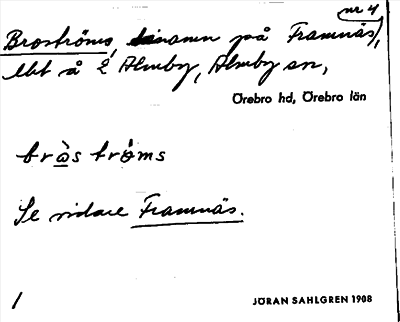 nr 4
Broströms, binamn på Framnäs,
lht å 2 Almby, Almby sn,
Örebro hd, Örebro län
bròs tròms
Se vidare Framnäs.
1 JÖRAN SAHLGREN 1908